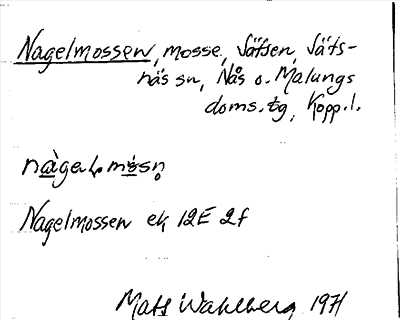 Nagelmossen, mosse, Säfsen, Säfs-
näs sn, Nås o. Malungs
doms.tg, Kopp.l.
Nagelmossen ek 12E 2f
Mats Wahlberg 1971